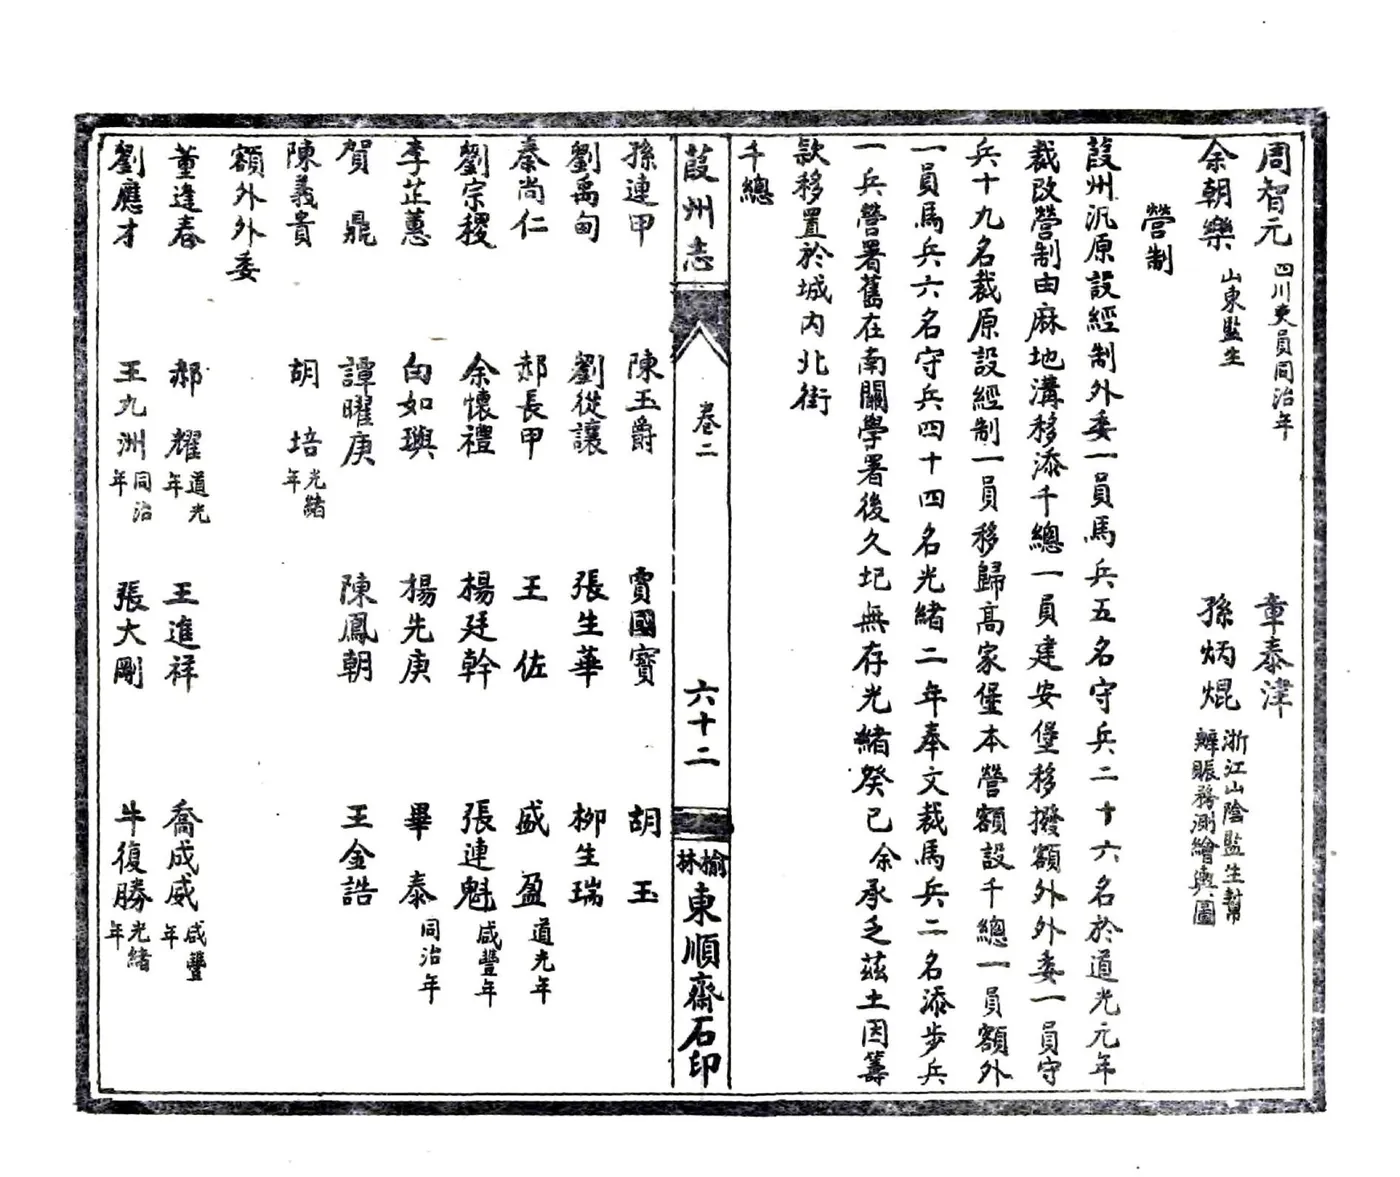 周智元 四川吏員同治年 章泰津
余朝樂 山東監生 孫炳焜 浙江山陰監生幫辦賑務測繪輿圖
營制
葭州汛原設經制外委一員馬兵五名守兵二十六名於道光元年
裁改營制由麻地溝移添千總一員建安堡移撥額外外委一員守
兵十九名裁原設經制一員移歸高家堡本營額設千總一員額外
一員馬兵六名守兵四十四名光緒二年奉文裁馬兵二名添步兵
一兵營署舊在南關學署後久圮無存光緒癸巳余承乏茲土因籌
款移置於城內北街
千總
葭州志 卷二 六十二 榆林東順齋石印
孫連甲 陳玉爵 賈國寶 胡玉
劉禹甸 劉從讓 張生華 柳生瑞
秦尚仁 郝長甲 王佐 盛盈 道光年
劉宗稷 余懷禮 楊廷幹 張連魁 咸豐年
李芷蕙 白如璵 楊先庚 畢泰 同治年
賀鼎 譚曜庚 陳鳳朝 王金誥
陳義貴 胡培 光緒年
額外外委
董逢春 郝耀 道光年 王進祥 喬成威 咸豐年
劉應才 王九洲 同治年 張大剛 牛復勝 光緒年